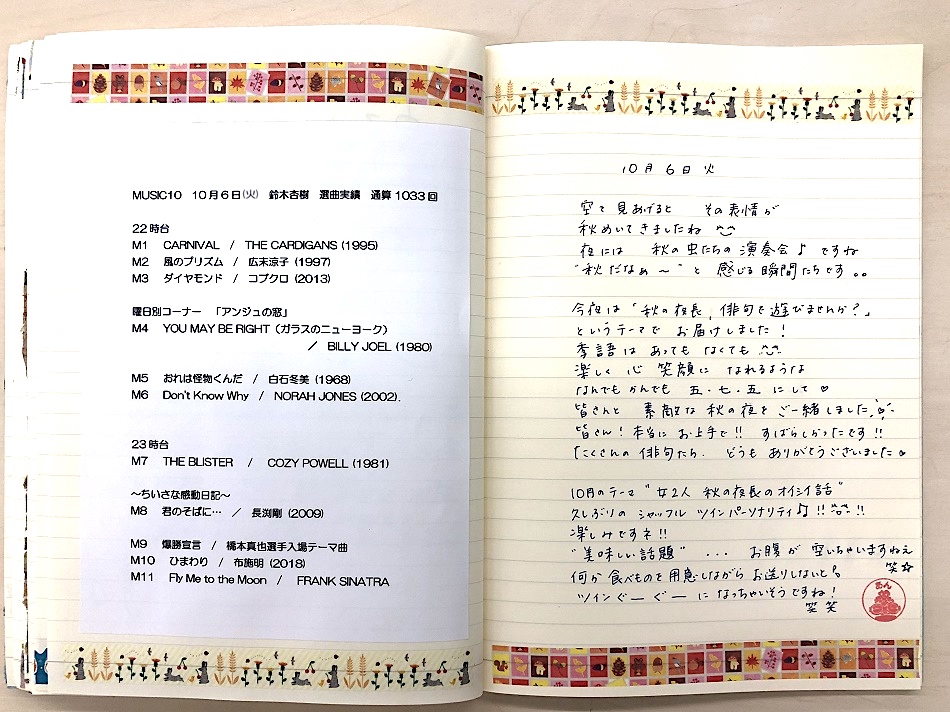 MUSIC10　10月6日㈫　鈴木杏樹　選曲実績　通算1033回
22時台
M1　CARNIVAL　/　THE CARDIGANS (1995)
M2　風のプリズム　/　広末涼子 (1997)
M3　ダイヤモンド　/　コブクロ (2013)
曜日別コーナー　「アンジュの窓」
M4　YOU MAY BE RIGHT（ガラスのニューヨーク）
／　BILLY JOEL (1980)
M5　おれは怪物くんだ　/　白石冬美 (1968)
M6　Don't Know Why　/　NORAH JONES (2002).
23時台
M7　THE BLISTER　/　COZY POWELL (1981)
～ちいさな感動日記～
M8　君のそばに…　/　長渕剛 (2009)
M9　爆勝宣言　/　橋本真也選手入場テーマ曲
M10　ひまわり　/　布施明 (2018)
M11　Fly Me to the Moon　/　FRANK SINATRA
10月6日火
空を見あげると　その表情が
秋めいてきましたね
夜には　秋の虫たちの演奏会♪ですね
"秋だなぁ～"と感じる瞬間たちです。。
今夜は「秋の夜長、俳句で遊びませんか？」
というテーマで　お届けしました！
季語は　あっても　なくても
楽しく　心　笑顔に　なれるような
なんでもかんでも　五・七・五　にして♡
皆さんと　素敵な秋の夜を　ご一緒しました
皆さん！本当に　お上手で!!　すばらしかったです!!
たくさんの俳句たち．どうもありがとうございました♡
10月のテーマ"女2人　秋の夜長のオイシイ話"
久しぶりの　シャッフル　ツインパーソナリティ♫!!^^!!
楽しみですネ!!
"美味しい話題"　・・・　お腹が　空いちゃいますねぇ
笑☆
何か食べものを用意しながらお送りしないと
ツインぐーぐーに　なっちゃいそうですね！
笑笑
あん